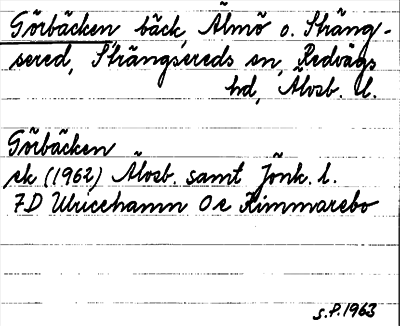 Görbäcken bäck, Älmö o. Sträng-
sered, Strängsereds sn, Redvägs
hd, Älvsb. l.
Görbäcken
ek (1962) Älvsb. samt Jönk. l.
7D Ulricehamn 0e Kimmarebo
s.P. 1963